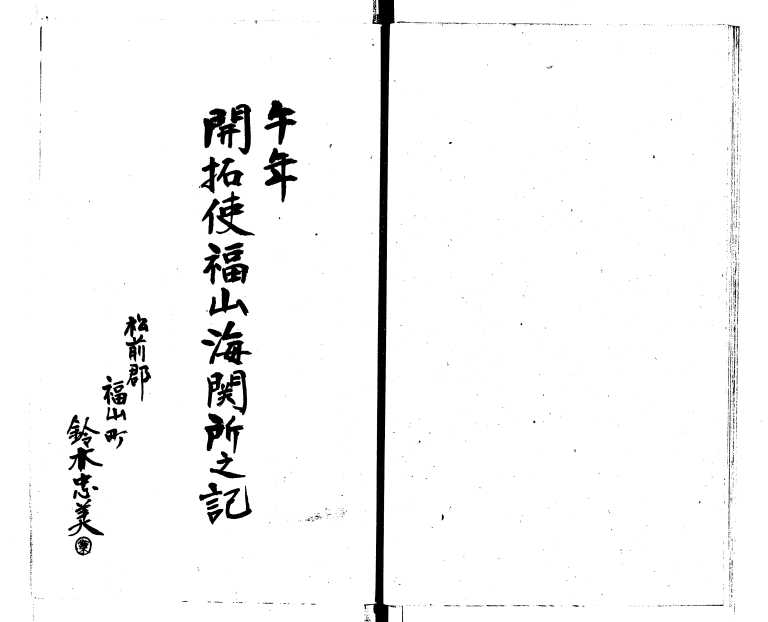 午年
開拓使福山海関所之記
松前郡
福山町
鈴木忠美